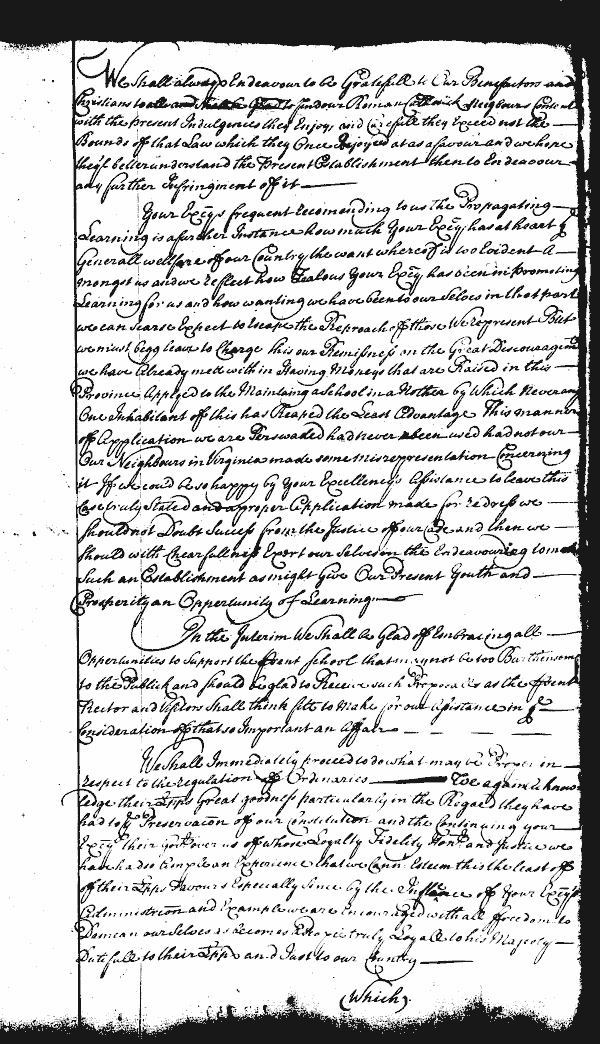 We Shall alwayes Endeavour to be Gratefull to Our Benefactors and
Christians to all and shall be Glad to find our Roman Catholick Neigbours Content
with the present Indulgences they Enjoy, and Carefull they Exceed not the
Bounds of that Law which they Once Injoyed at as a favour and we hope
they'l better understand the Present Establishment then to Endeavour
any further Infringment off it
Your Excy's frequent recomending to us the Propagating
Learning is a further Instance how much Your Excy has at heart ye
Generall wellfare off our Country the want whereof is too Evident A
mongst us and we reflect how Zealous Your Excy has been in promoting
Learning for us and how wanting we have been to our Selves in that part
we can scarse Expect to Escape the Reproach off those We represent But
we must begg leave to Charge this our Remissness on the Great Discouragemt
we have Already mett with in Having Moneys that are Raised in this
Province Applyed to the Maintaing a School in a Nother by Which Never any
One Inhabitant off this has Reaped the Least Advantage This manner
off Application we are Perswaded had never been used had not our
Our Neighbours in Virginia made some misrepresentation Concerning
it If we could be so happy by Your Excellencys Assistance to leave this
Case truly Stated and a proper Application made for redress we
should not Doubt Success from the Justice off our Case and then we
should with Chearfullness Exert our Selves in the Endeavouring to make
Such an Establishment as might Give Our Present Youth and
Prosperity an Oppertunity of Learning
In the Interim We Shall be Glad off Embracing all
Oppertunities to Support the School that may not be too Burthensome
to the Publick and should be glad to Receive such Proposalls as the
Rector and Visitors Shall think fitt to Make for our Assistance in ye
Consideration off that so Important an Affair
We Shall Immediately proceed to do what may be Proper in
respect to the regulation off Ordinaries We again Acknow
ledge their Lpps Great goodness particularly in the Regard they have
had to ye Preservacon off our Constitution and the Continuing your
Excy their Govr over us off whose Loyalty Fidelity Honr and Justice we
have had so Ample an Experience that we Canot Esteem this the least off
off their Lpps Favours Especially Since by the Influence off Your Excys
Administracon and Example we are Encouraged with all freedom to
Demean our Selves as becomes People truly Loyall to his Majesty
Dutifull to their Lpps and Just to our Country
Which